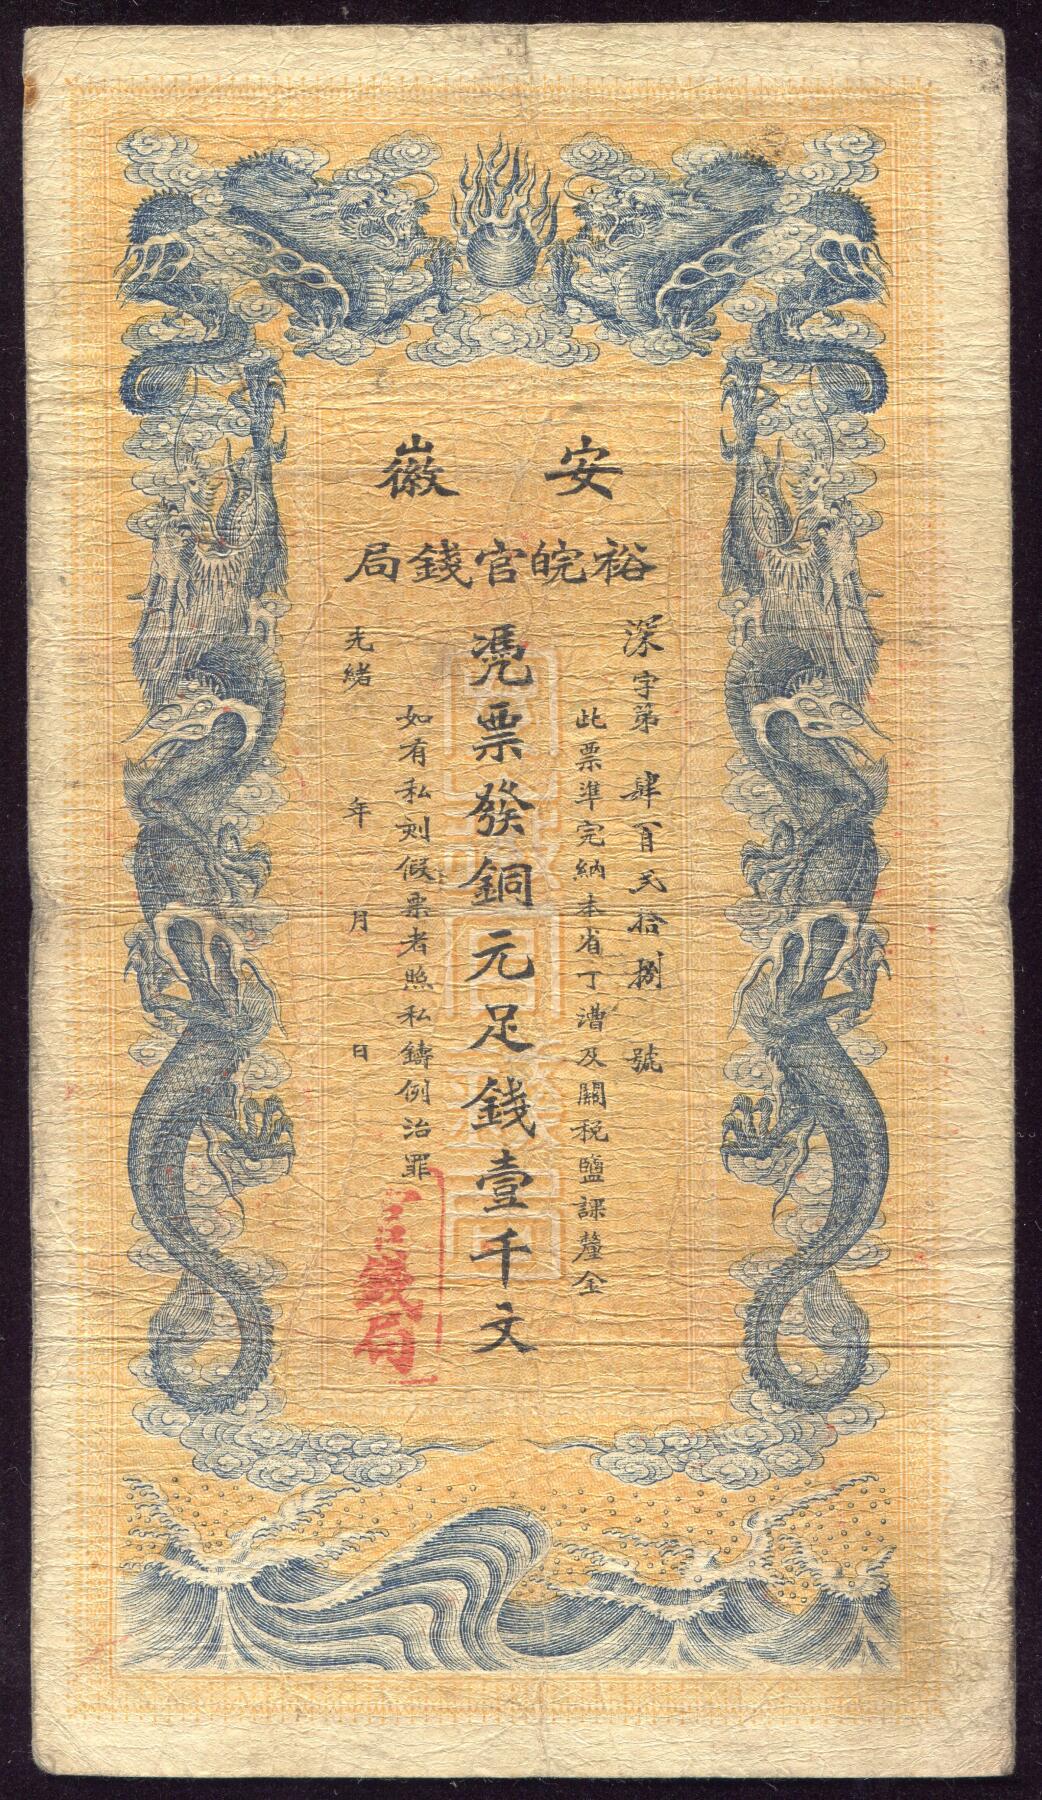 安徽
裕皖官錢局
深字第肆百弍拾捌號
此票準完納本省丁漕及關稅鹽課釐金
憑票發銅元足錢壹千文
如有私刻假票者照私鑄例治罪
光緒 年 月 日
錢局